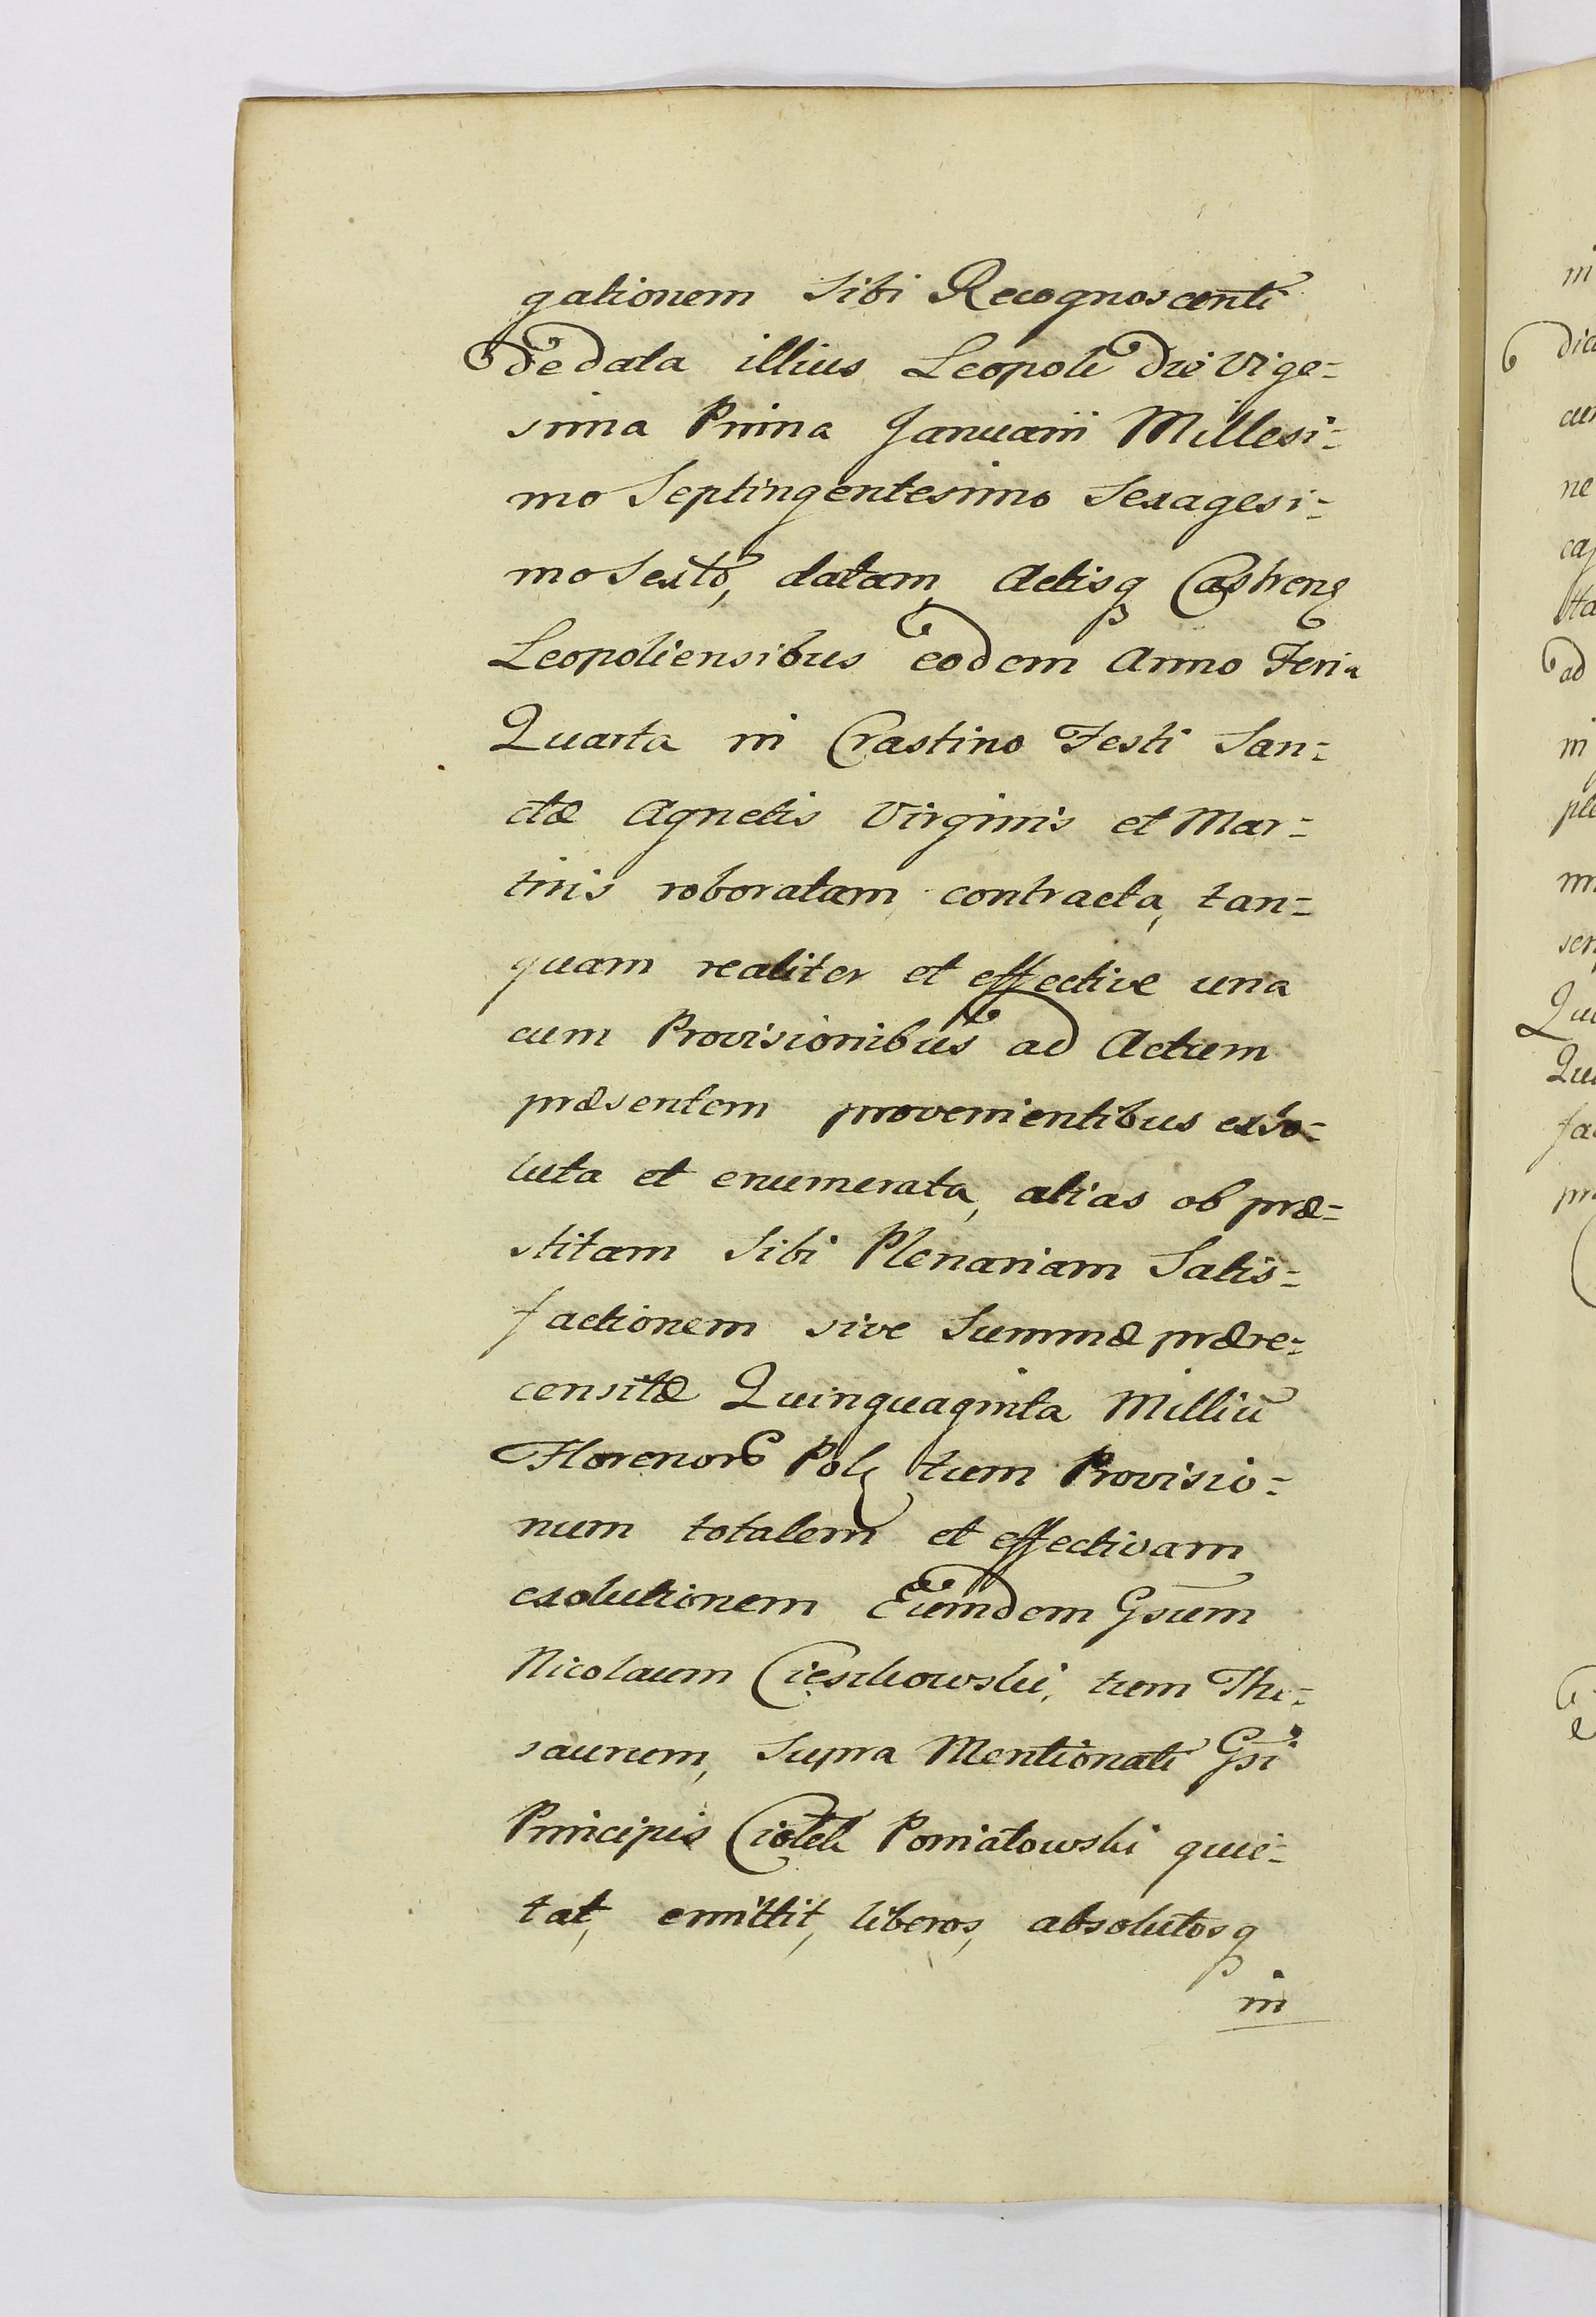 gationem Sibi Recognoscenti
de data illius Leopoli Die Vige=
sima Prima Januarii Millesi=
mo Septingentesimo Sexagesi=
mo Sexto, datam, Actisq Castren
Leopoliensibus eodem Anno Feria
Quarta in Crastino Festi San=
ctæ Agnetis Virginis et Mar=
tiris roboratam contracta, tan=
quam realiter et effective una
cum Provisionibus ad Actum
præsentem provenientibus exso=
luta et enumerata, alias ob præ=
stitam Sibi Plenariam Satis=
factionem sive Summæ prære=
censitæ Quinquaginta Milliū
Florenor Pol tum Provisio=
num totalem et effectivam
exolutionem Eumdem Gsum
Nicolaum Cieschowski, tum The=
saurum, Supra Mentionati Gsi
Principis Ciołek Poniatowski quie=
tat, emittit, liberos, absolutosq
in